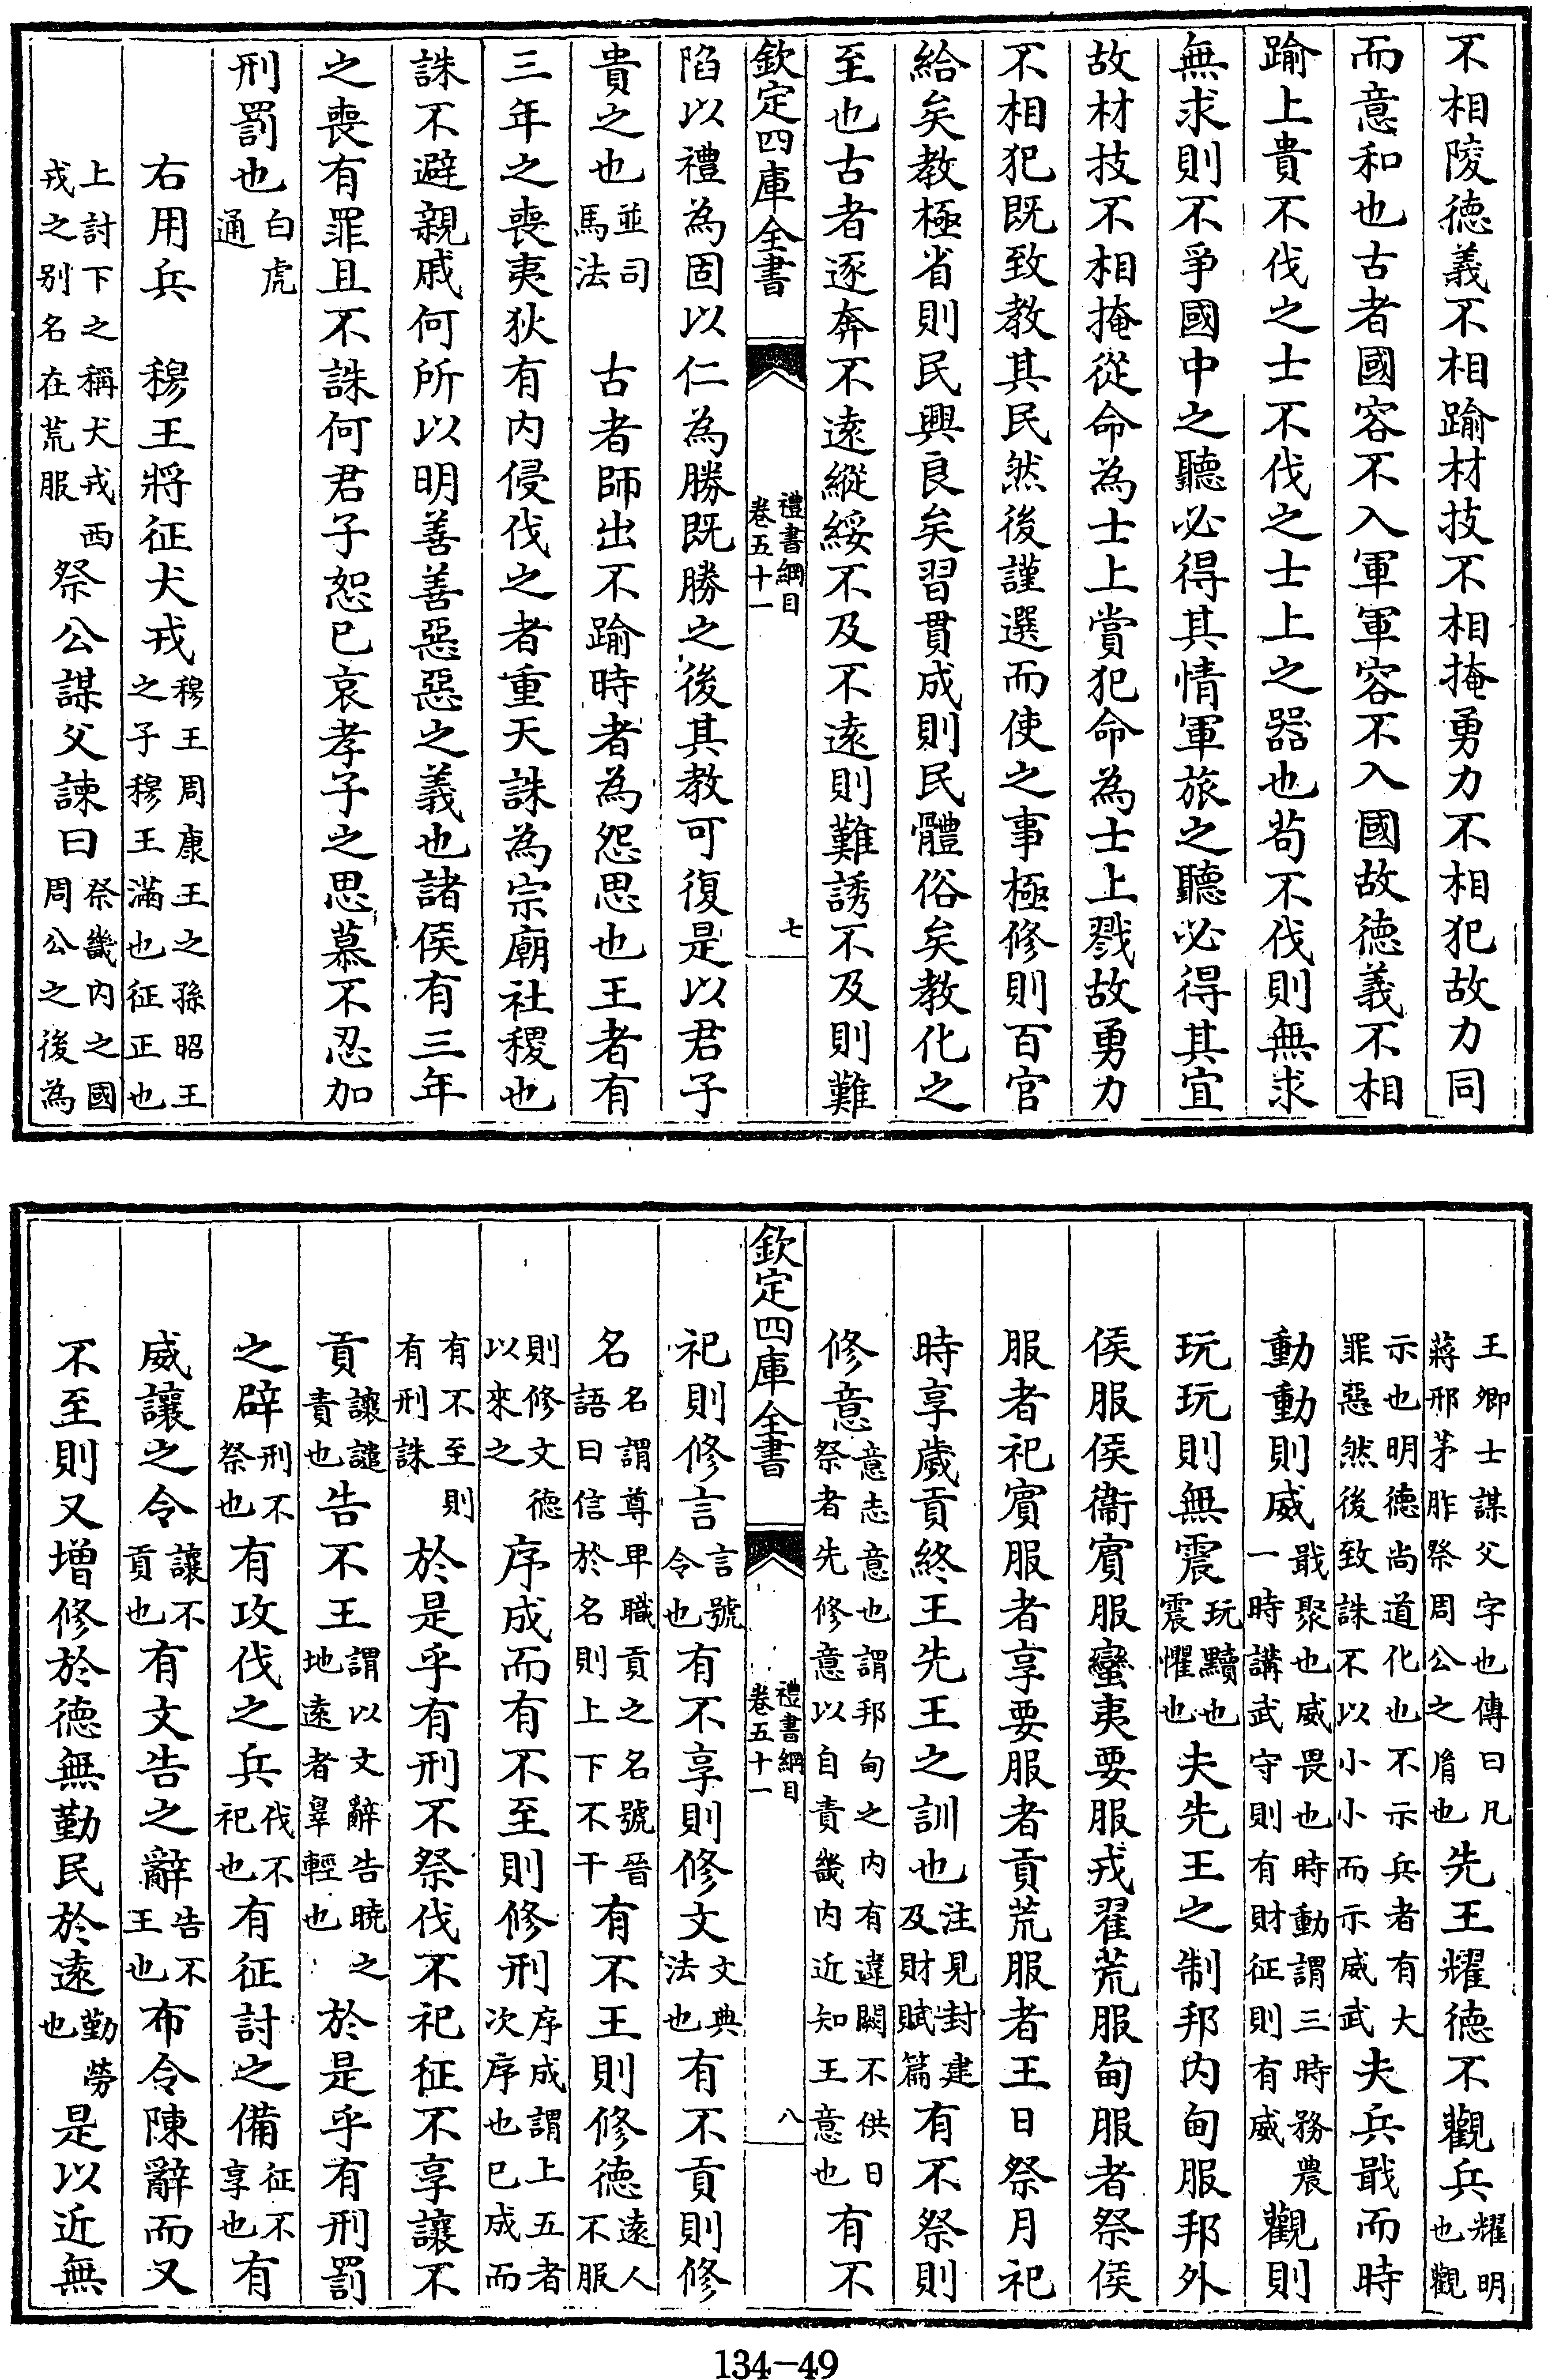 不相陵德義不相踰材技不相掩勇力不相犯故力同
而意和也古者國容不入軍軍容不入國故德義不相
踰上貴不伐之士不伐之士上之器也苟不伐則無求
無求則不爭國中之聽必得其情軍旅之聽必得其宜
故材技不相掩從命為士上賞犯命為士上戮故勇力
不相犯既致教其民然後謹選而使之事極修則百官
給矣教極省則民興良矣習貫成則民體俗矣教化之
至也古者逐奔不遠縱綏不及不遠則難誘不及則難
欽定四庫全書
禮書綱目
卷五十一
七
陷以禮為固以仁為勝既勝之後其教可復是以君子
貴之也並司馬法 古者師出不踰時者為怨思也王者有
三年之喪夷狄有内侵伐之者重天誅為宗廟社稷也
誅不避親戚何所以明善善惡惡之義也諸侯有三年
之喪有罪且不誅何君子恕已哀孝子之思慕不忍加
刑罰也白虎通
右用兵 穆王將征犬戎穆王周康王之孫昭王之子穆王滿也征正也
上討下之稱犬戎西戎之别名在荒服祭公謀父諫曰祭畿内之國周公之後為
王卿士謀父字也傳曰凡蔣邢茅胙祭周公之胤也先王耀德不觀兵耀明也觀
示也明德尚道化也不示兵者有大罪惡然後致誅不以小小而示威武夫兵戢而時
動動則威戢聚也威畏也時動謂三時務農一時講武守則有財征則有威觀則
玩玩則無震玩黷也震懼也夫先王之制邦内甸服邦外
侯服侯衞賓服蠻夷要服戎翟荒服甸服者祭侯
服者祀賓服者享要服者貢荒服者王日祭月祀
時享歲貢終王先王之訓也注見封建及財賦篇有不祭則
修意意志意也謂邦甸之内有違闕不供日祭者先修意以自責畿内近知王意也有不
欽定四庫全書
禮書綱目
卷五十一
八
祀則修言言號令也有不享則修文文典法也有不貢則修
名名謂尊卑職貢之名號晉語曰信於名則上下不干有不王則修德遠人不服
則修文德以來之序成而有不至則修刑序成謂上五者次序也已成而
有不至則有刑誅於是乎有刑不祭伐不祀征不享讓不
貢讓譴責也告不王謂以文辭告曉之地遠者辠輕也於是乎有刑罰
之辟刑不祭也有攻伐之兵伐不祀也有征討之備征不享也有
威讓之令讓不貢也有文告之辭告不王也布令陳辭而又
不至則又增修於德無勤民於遠勤勞也是以近無
134-49